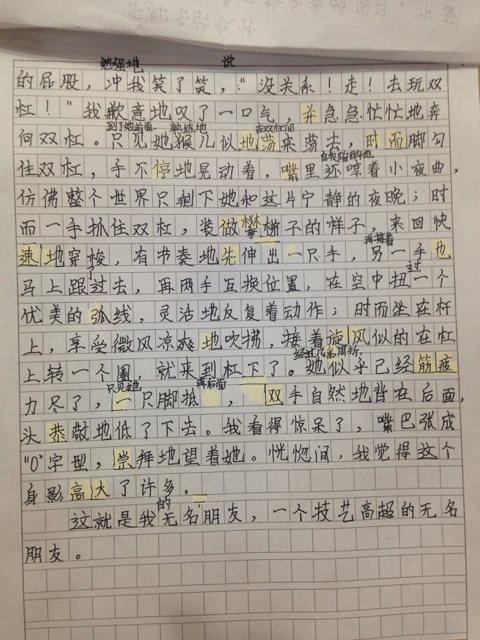 勉强地 说
的屁股，冲我笑了笑，“没关系！走！去玩双
杠！”我歉意地叹了一口气，并急急忙忙地奔
向双杠。只见她猴儿似地荡来荡去，时而脚勾
住双杠，手不停地晃动着，嘴里还哼着小夜曲，
仿佛整个世界只剩下她和这片宁静的夜晚；时
而一手抓住双杠，装做梯子的样子，来回快
速地穿梭，有节奏地先伸出一只手，另一手也
马上跟过去，再两手互换位置，在空中扭一个
优美的弧线，灵活地反复着动作；时而坐在杆
上，享受微风凉爽地吹拂，接着旋风似的在杠
上转一个圈，就来到杠下了。她似乎已经筋疲
只见她
力尽了，一只脚抵，双手自然地背在后面，
头恭敬地低了下去。我看得惊呆了，嘴巴张成
“O”字型，崇拜地望着她。恍惚间，我觉得这个
身影高大了许多。
这就是我的无名朋友，一个技艺高超的无名
朋友。